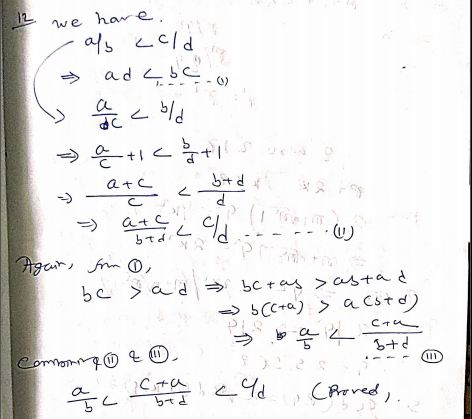 12 we have.
a/b < c/d
⇒ ad < bc ---- (i)
⇒ a/c < b/d
⇒ a/c +1 < b/d +1
⇒ (a+c)/c < (b+d)/d
⇒ (a+c)/(b+d) < c/d ------- (ii)
Again, from (i),
bc > ad ⇒ bc+ab > ab+ad
⇒ b(c+a) > a(b+d)
⇒ a/b < (c+a)/(b+d) ---- (iii)
Combining (ii) & (iii),
a/b < (c+a)/(b+d) < c/d (Proved).